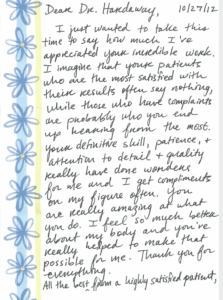 Dear Dr. Hardaway, 10/27/12
I just wanted to take this
time to say how much I've
appreciated your incredible work.
I imagine that your patients
who are the most satisfied with
their results often say nothing,
while those who have complaints
are probably who you end
up hearing from the most.
Your definitive skill, patience, +
attention to detail + quality
really have done wonders
for me and I get compliments
on my figure often. You
are really amazing at what
you do. I feel so much better
about my body and you've
really helped to make that
possible for me. Thank you for
everything.
All the best from a highly satisfied patient,